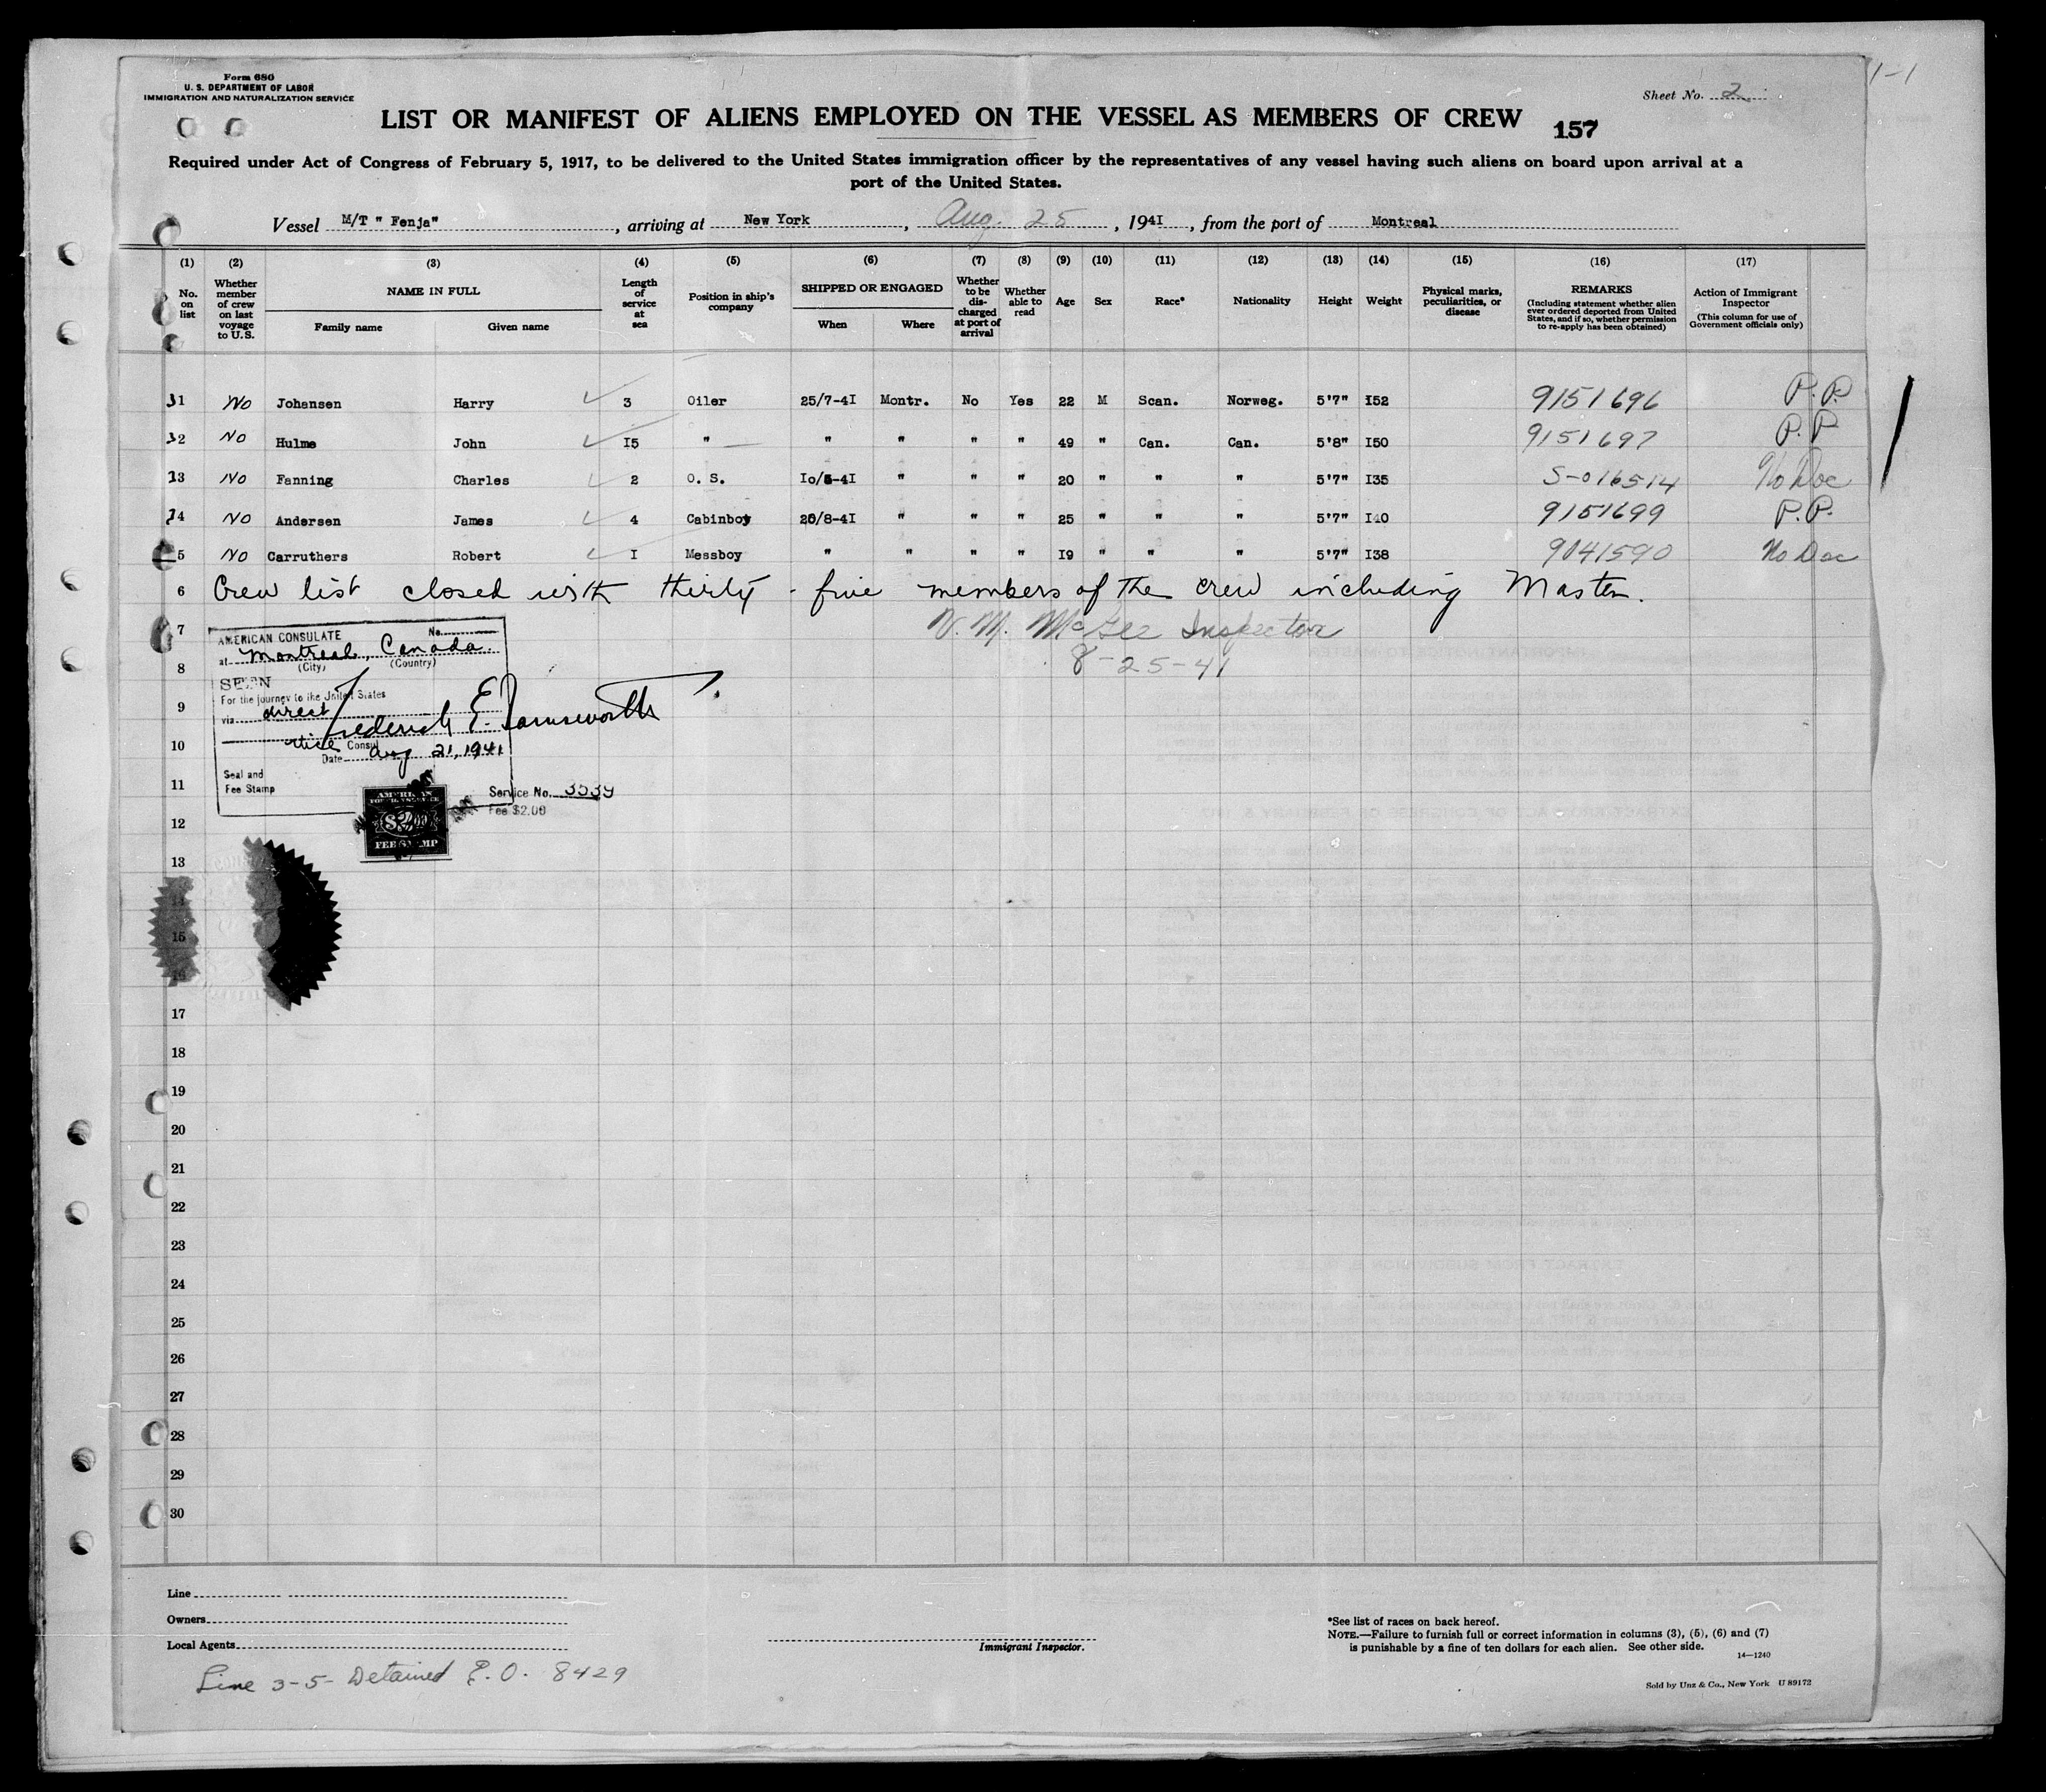 Form 680
U. S. DEPARTMENT OF LABOR
IMMIGRATION AND NATURALIZATION SERVICE
1-1
Sheet No. 2
LIST OR MANIFEST OF ALIENS EMPLOYED ON THE VESSEL AS MEMBERS OF CREW 157
Required under Act of Congress of February 5, 1917, to be delivered to the United States immigration officer by the representatives of any vessel having such aliens on board upon arrival at a
port of the United States.
Vessel M/T " Fenja" , arriving at New York , Aug. 25 , 1941 , from the port of Montreal
(1) (2) (3) (4) (5) (6) (7) (8) (9) (10) (11) (12) (13) (14) (15) (16) (17)
No. on list
Whether member of crew on last voyage to U.S.
NAME IN FULL
Family name Given name
Length of service at sea
Position in ship's company
SHIPPED OR ENGAGED
When Where
Whether to be discharged at port of arrival
Whether able to read
Age
Sex
Race*
Nationality
Height
Weight
Physical marks, peculiarities, or disease
REMARKS
(Including statement whether alien ever ordered deported from United States, and if so, whether permission to re-apply has been obtained)
Action of Immigrant Inspector
(This column for use of Government officials only)
1 No Johansen Harry 3 Oiler 25/7-41 Montr. No Yes 22 M Scan. Norweg. 5'7" 152 9151696 P.P.
2 No Hulme John 15 " " " " " 49 " Can. Can. 5'8" 150 9151697 P.P.
3 No Fanning Charles 2 O. S. 10/5-41 " " " 20 " " " 5'7" 135 S-016514 No Doc
4 No Andersen James 4 Cabinboy 20/8-41 " " " 25 " " " 5'7" 140 9151699 P.P.
5 No Carruthers Robert 1 Messboy " " " " 19 " " " 5'7" 138 9041590 No Doc
6 Crew list closed with thirty-five members of the crew including Master.
7 V. M. McGee Inspector
8 8-25-41
AMERICAN CONSULATE No.
at Montreal, Canada.
(City) (Country)
SEEN
For the journey to the United States
via direct
Frederick E. Farnsworth
Vice Consul
Date Aug 21, 1941
Seal and
Fee Stamp
Service No. 3539
Fee $2.00
AMERICAN
FOREIGN SERVICE
$2.00
FEE STAMP
9
10
11
12
13
14
15
16
17
18
19
20
21
22
23
24
25
26
27
28
29
30
Line
Owners
Local Agents
Immigrant Inspector.
*See list of races on back hereof.
NOTE.—Failure to furnish full or correct information in columns (3), (5), (6) and (7)
is punishable by a fine of ten dollars for each alien. See other side.
14—1240
Sold by Unz & Co., New York U 89172
Line 3-5- Detained E.O. 8429